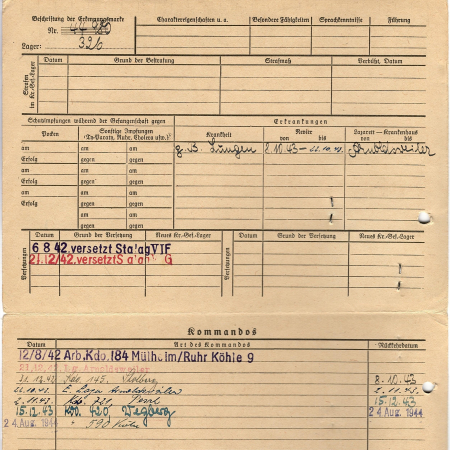 Beschriftung der Erkennungsmarke
Nr.
Lager: 326
Charaktereigenschaften u. a.
Besondere Fähigkeiten
Sprachkenntnisse
Führung
Strafen im Kr.-Gef.-Lager
Datum
Grund der Bestrafung
Strafmaß
Verbüßt, Datum
Schutzimpfungen während der Gefangenschaft gegen
Erkrankungen
Pocken
Sonstige Impfungen
(Ty-Paraty, Ruhr, Cholera usw.)
Krankheit
Revier
von bis
Lazarett — Krankenhaus
von bis
am am am
Erfolg gegen gegen
am am am
Erfolg gegen gegen
am am am
Erfolg gegen gegen
am am
gegen gegen
8.10.43 — Arnoldsweiler
Versetzungen
Datum
Grund der Versetzung
Neues Kr.-Gef.-Lager
Datum
Grund der Versetzung
Neues Kr.-Gef.-Lager
6 8 42. versetzt Stalag VI F
21.12/42. versetzt Stalag G
Kommandos
Datum
Art des Kommandos
Rückkehrdatum
12/8/42 Arb. Kdo. 184 Mülheim/Ruhr Köhle 9
21.12.42 Lg. Arnoldsweiler
31.12.42 Kdo. 145, Stolberg 8.10.43
E. Lager Arnoldsweiler 2.11.43.
2.11.43. Kdo. 721, 15.12.43
15.12.43 Kdo. 420, Wegberg 24. Aug. 1944
24. Aug. 1944 " 590 Köln